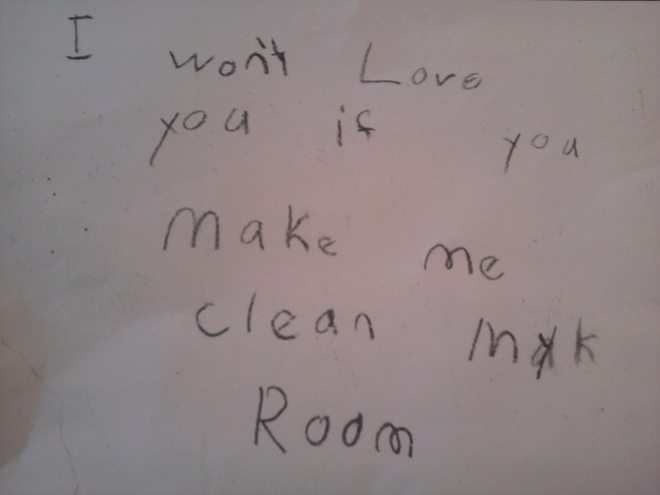 I won't Love
you if you
Make me
clean myk
Room